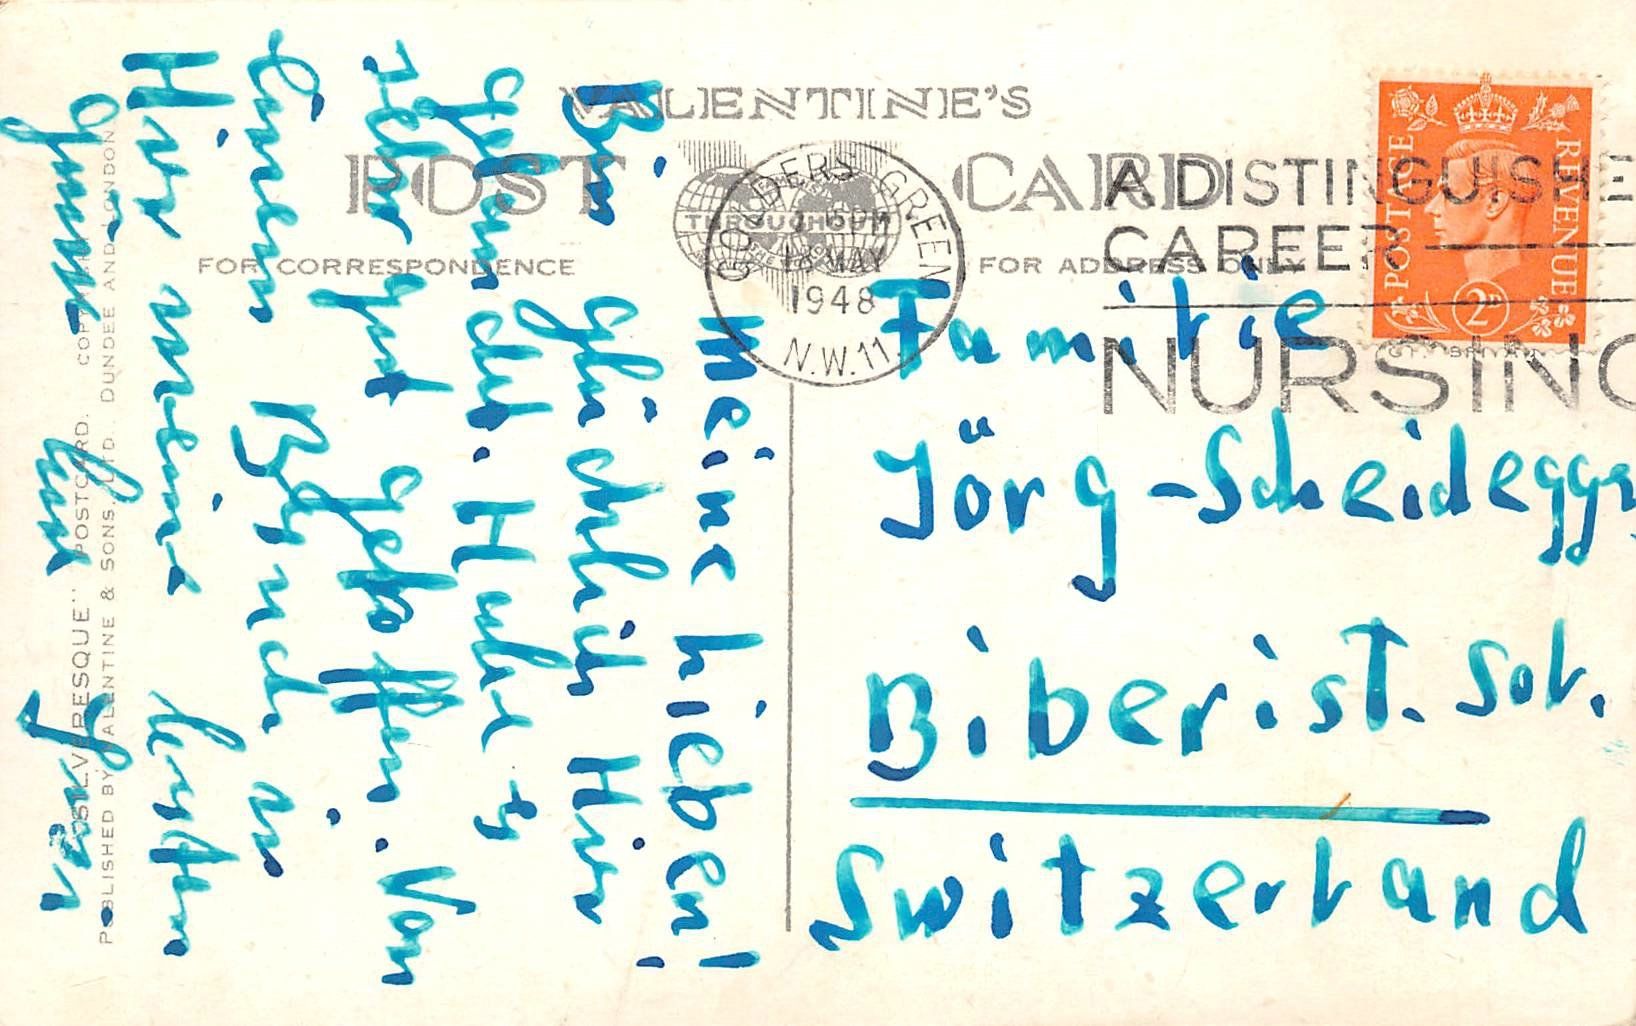 VALENTINE'S
POST CARD
THROUGHOUT
THE WORLD
FOR CORRESPONDENCE
FOR ADDRESS ONLY
GOLDERS GREEN
18 MAY
1948
N.W.11.
A DISTINGUISHE
CAREER
NURSING
POSTAGE
REVENUE
2D
Familie
Jörg-Scheidegger
Biberist. Sol.
Switzerland
Meine Lieben!
Bin glücklich hier
gelandet. Habe es
sehr gut getroffen. Von
einem
Hier meine besten
"SILVERESQUE" POSTCARD.
PUBLISHED BY VALENTINE & SONS, LTD., DUNDEE AND LONDON